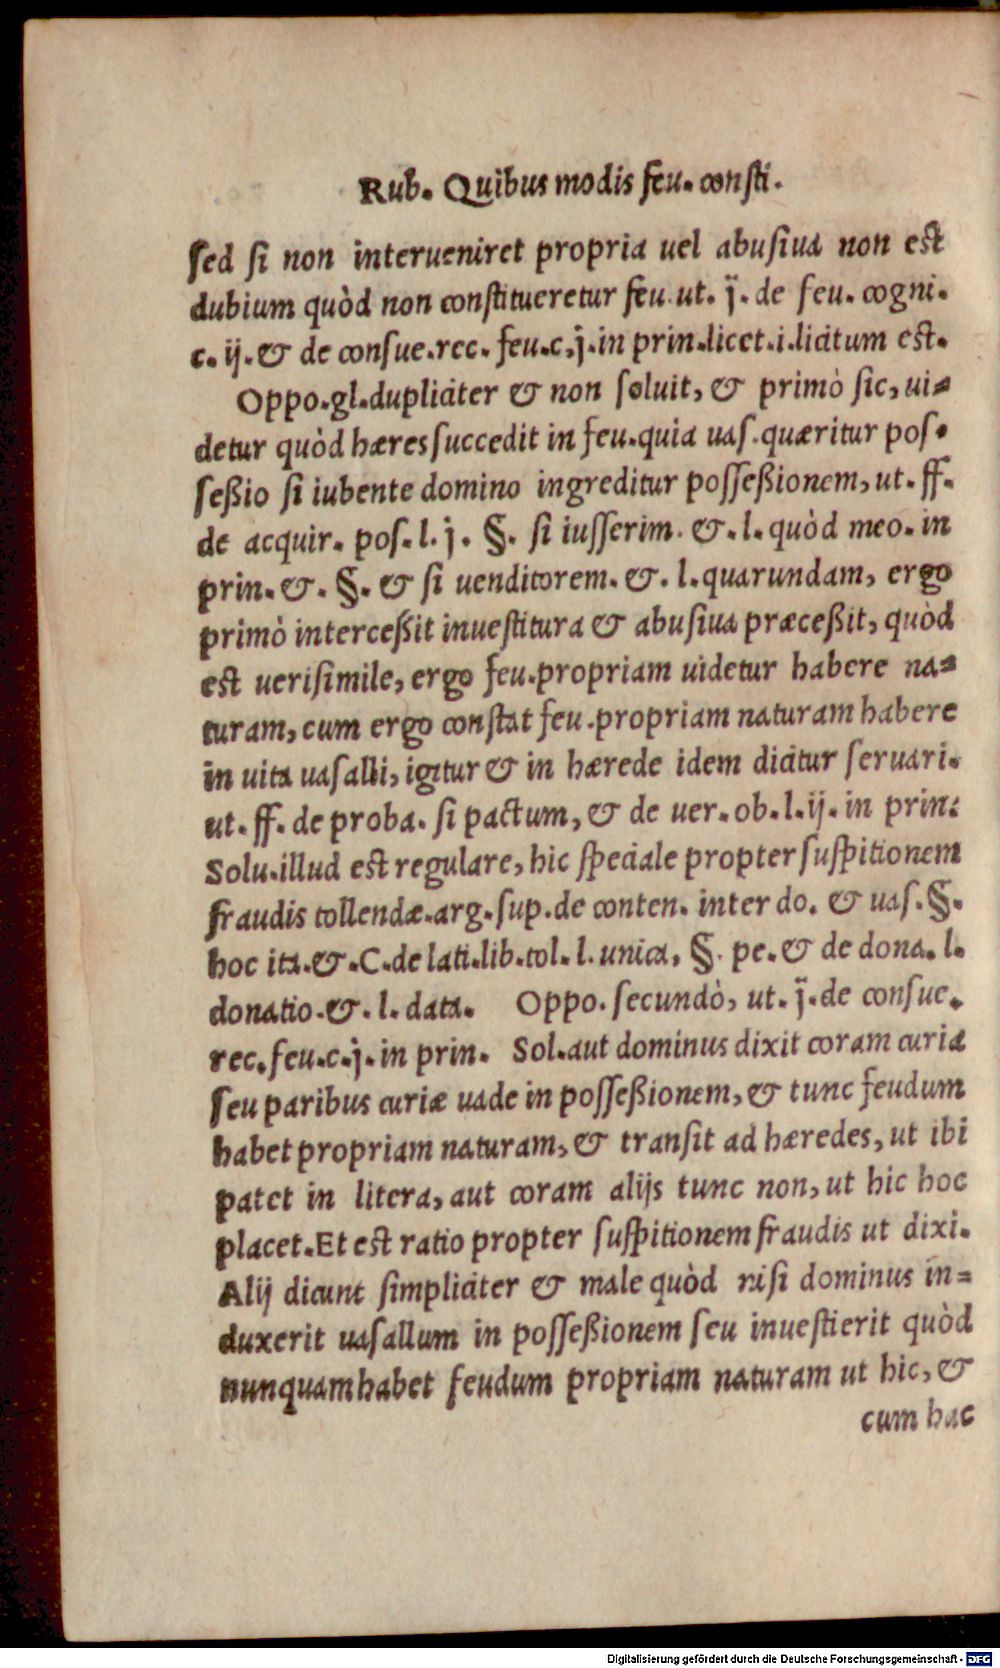 Rub. Quibus modis feu. consti.
sed si non interueniret propria uel abusiua non est
dubium quòd non constitueretur feu. ut. j̈. de feu. cogni.
c. ij. & de consue.rec. feu.c.j.in prin.licet.i.licitum est.
Oppo.gl.dupliciter & non soluit, & primò sic, ui=
detur quòd hæres succedit in feu.quia uas.quæritur pos.
seßio si iubente domino ingreditur posseßionem, ut. ff.
de acquir. pos. l. j. §. si iusserim. &. l. quòd meo. in
prin. &. §. & si uenditorem. &. l. quarundam, ergo
primò interceßit inuestitura & abusiua præceßit, quòd
est uerisimile, ergo feu.propriam uidetur habere na=
turam, cum ergo constat feu.propriam naturam habere
in uita uasalli, igitur & in hærede idem dicitur seruari.
ut. ff. de proba. si pactum, & de uer. ob. l. ij. in prin.
Solu.illud est regulare, hic speciale propter suspitionem
fraudis tollendæ.arg.sup.de conten. inter do. & uas.§.
hoc ita.&.C.de lati.lib.tol. l. unica, §. pe. & de dona. l.
donatio.&. l. data. Oppo. secundò, ut. j̈. de consue.
rec.feu.c.j.in prin. Sol.aut dominus dixit coram curia
seu paribus curiæ uade in possessßionem, & tunc feudum
habet propriam naturam, & transit ad hæredes, ut ibi
patet in litera, aut coram alijs tunc non, ut hic hoc
placet.Et est ratio propter suspitionem fraudis ut dixi.
Alij dicunt simpliciter & male quòd nisi dominus in=
duxerit uasallum in possessßionem seu inuestierit quòd
nunquam habet feudum propriam naturam ut hic, &
cum hac
Digitalisierung gefördert durch die Deutsche Forschungsgemeinschaft - DFG